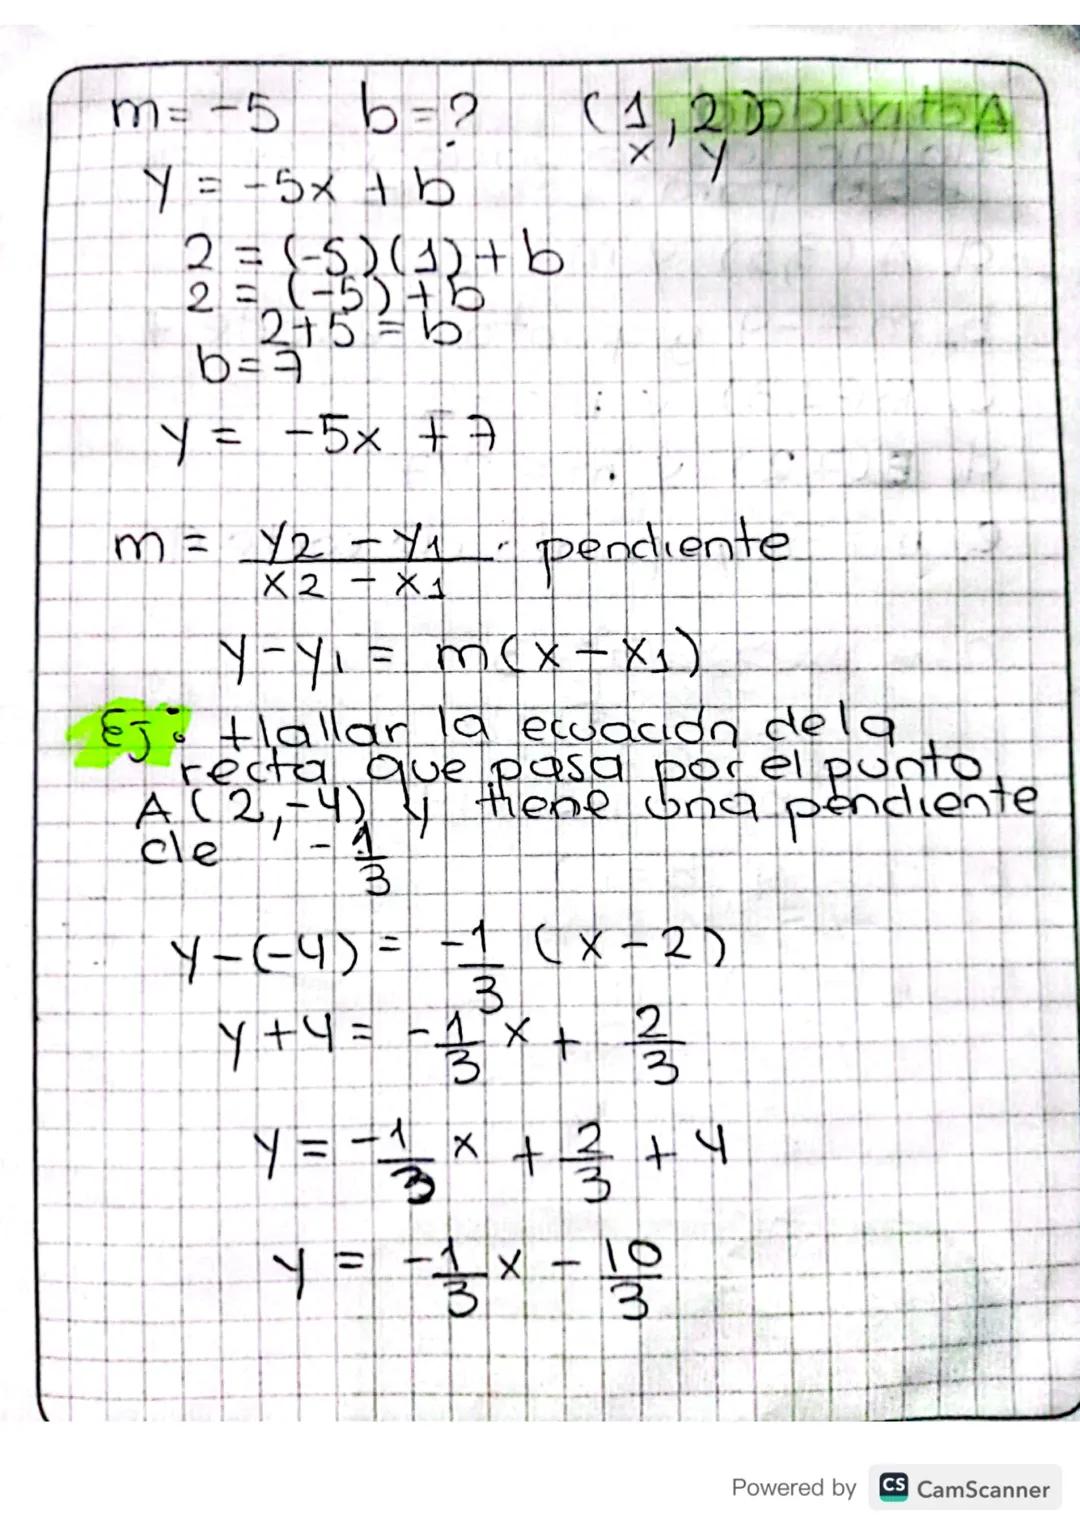 m= -5 b=? (1, 2)
x y
y = -5x + b
2 = (-5)(1)+b
2 = (-5)+b
2+5=b
b=7
y = -5x +7
m = y2 - y1 / x2 - x1 · pendiente
y-y1 = m(x-x1)
Ej: Hallar la ecuación de la
recta que pasa por el punto
A(2,-4) y tiene una pendiente
de -1/3
y-(-4)= -1/3 (x-2)
y+4= -1/3 x + 2/3
y= -1/3 x + 2/3 + 4
y = -1/3 x - 10/3
Powered by CS CamScanner